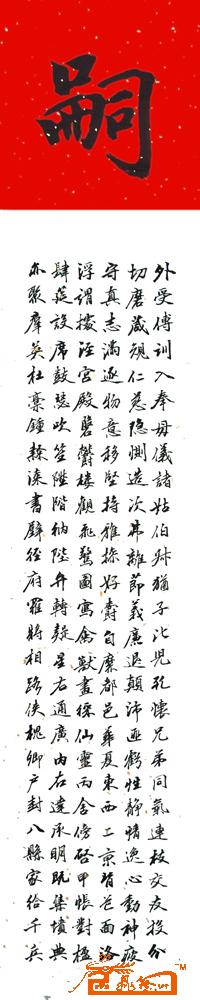 嗣
外受傅訓入奉母儀諸姑伯叔猶子比兒孔懷兄弟同氣連枝交友投分
切磨箴規仁慈隱惻造次弗離節義廉退顛沛匪虧性靜情逸心動神疲
守真志滿逐物意移堅持雅操好爵自縻都邑華夏東西二京背芒面洛
浮渭據涇宮殿磐鬱樓觀飛驚圖寫禽獸畫綵仙靈丙舍傍啓甲帳對楹
肆筵設席鼓瑟吹笙陞階納陛弁轉疑星右通廣內左達承明既集墳典
亦聚群英杜稾鍾隸漆書壁經府羅將相路俠槐卿戶封八縣家給千兵